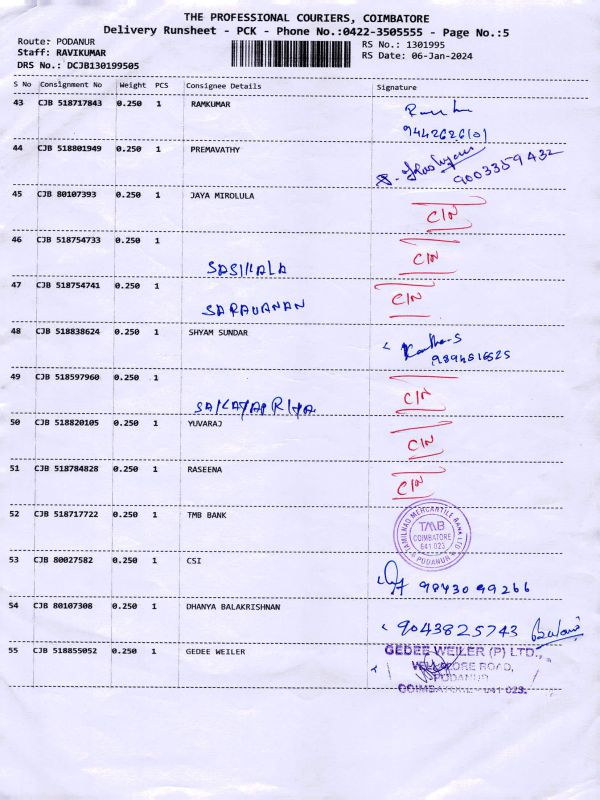 THE PROFESSIONAL COURIERS, COIMBATORE
Delivery Runsheet - PCK - Phone No.:0422-3505555 - Page No.:5
Route: PODANUR
RS No.: 1301995
Staff: RAVIKUMAR
RS Date: 06-Jan-2024
DRS No.: DCJB130199505
S No Consignment No Weight PCS Consignee Details Signature
43 CJB 518717843 0.250 1 RAMKUMAR
9442626101
44 CJB 518801949 0.250 1 PREMAVATHY
9003359432
45 CJB 80107393 0.250 1 JAYA MIROLULA
C/N
46 CJB 518754733 0.250 1
SASIKALA C/N
47 CJB 518754741 0.250 1
SARAVANAN C/N
48 CJB 518838624 0.250 1 SHYAM SUNDAR
49 CJB 518597960 0.250 1
C/N
50 CJB 518820105 0.250 1 YUVARAJ
C/N
51 CJB 518784828 0.250 1 RASEENA
C/N
52 CJB 518717722 0.250 1 TMB BANK
TAMILNAD MERCANTILE BANK LTD
TMB
COIMBATORE
641 023
PODANUR
53 CJB 80027582 0.250 1 CSI
9843099266
54 CJB 80107308 0.250 1 DHANYA BALAKRISHNAN
9043825743
55 CJB 518855052 0.250 1 GEDEE WEILER
GEDEE WEILER (P) LTD.,
ROAD,
PODANUR
COIMBATORE - 641 023.